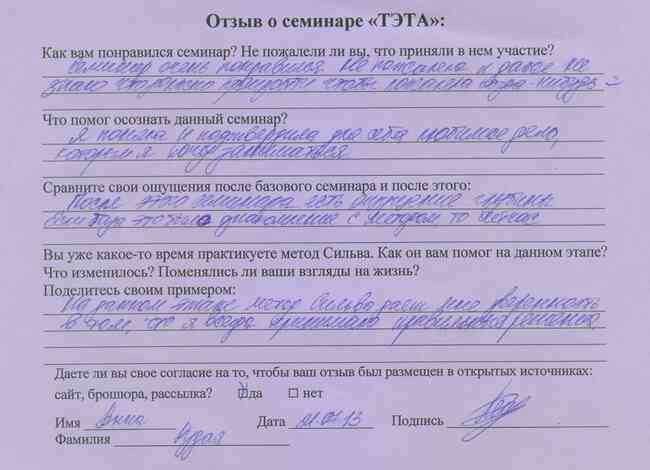 Отзыв о семинаре «ТЭТА»:
Как вам понравился семинар? Не пожалели ли вы, что приняли в нем участие?
Семинар очень понравился. Не пожалела и даже не
знаю что нужно чтобы пожалела когда-нибудь
Что помог осознать данный семинар?
Я поняла и подтвердила для себя любимое дело,
которым я буду заниматься
Сравните свои ощущения после базового семинара и после этого:
После этого семинара есть ощущение глубины
Если тогда это было знакомство с методом, то сейчас
Вы уже какое-то время практикуете метод Сильва. Как он вам помог на данном этапе?
Что изменилось? Поменялись ли ваши взгляды на жизнь?
Поделитесь своим примером:
На данном этапе метод Сильва дает мне уверенность
в том, что я всегда принимаю правильные решения
Даете ли вы свое согласие на то, чтобы ваш отзыв был размещен в открытых источниках:
сайт, брошюра, рассылка? да нет
Имя Анна Дата 21.07.13 Подпись
Фамилия